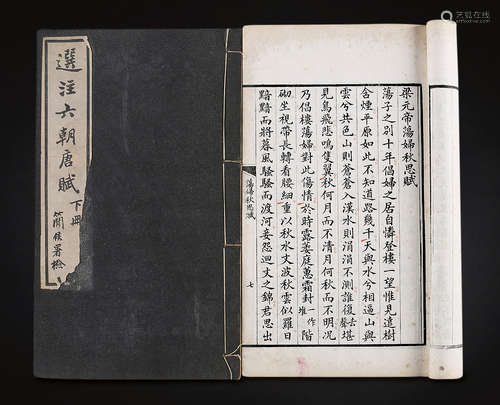 選注六朝唐賦
下冊
簡侯署檢
梁元帝蕩婦秋思賦
蕩子之別十年倡婦之居自憐登樓一望惟見遠樹
含煙平原如此不知道路幾千天與水兮相逼山與
雲兮共色山則蒼蒼入漢水則涓涓不測誰復堪
見鳥飛悲鳴隻翼秋何月而不清月何秋而不明況
乃倡樓蕩婦對此傷情於時露萎庭蕙霜封階
一作堆
砌坐視帶長轉看腰細重以秋水文波秋雲似羅日
黯黯而將暮風騷騷而渡河妾怨迴文之錦君思出
蕩婦秋思賦
七